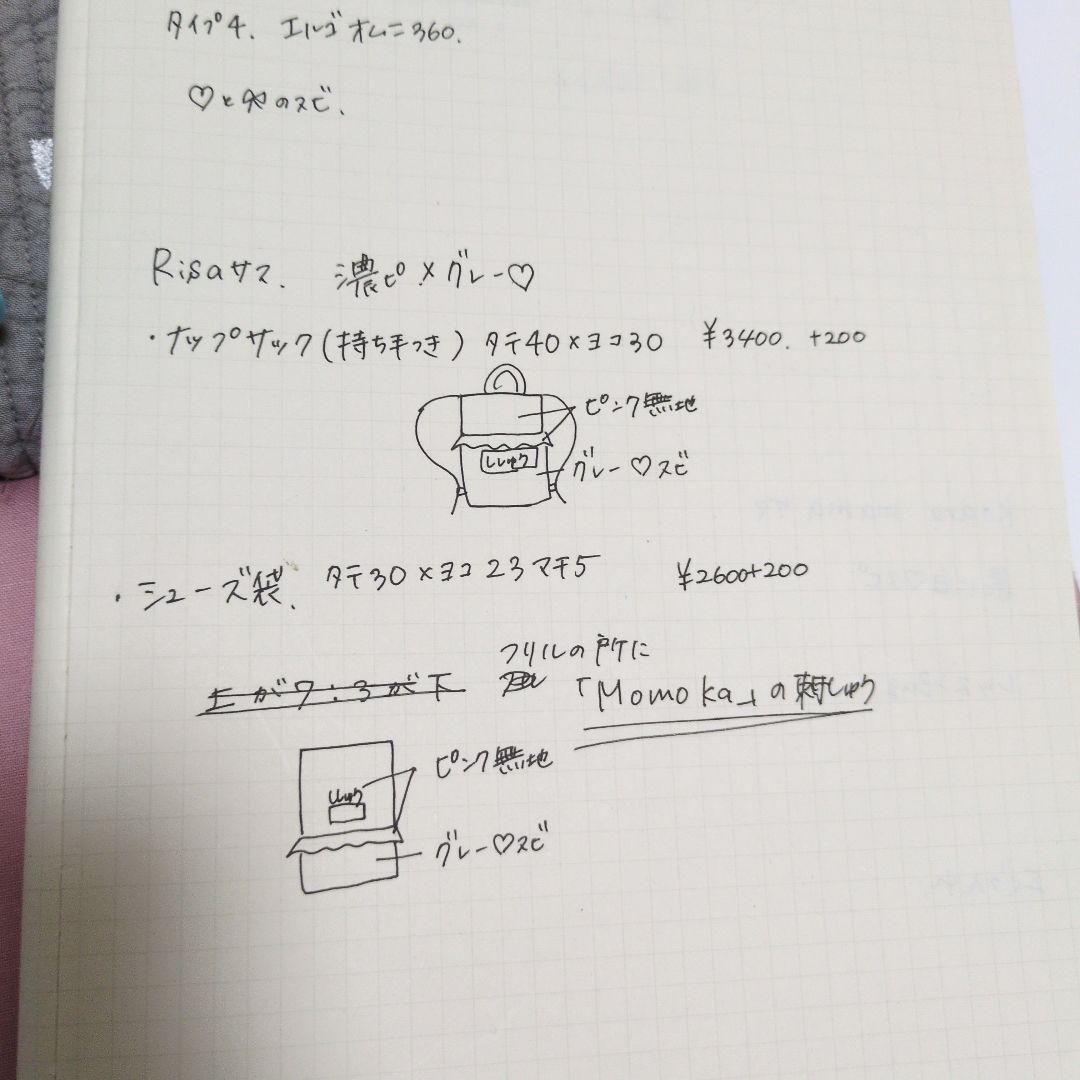 タイプ4. エルゴオムニ360.
♡と🎀のスピ.
Risaサマ. 濃ピ×グレー♡
・ナップサック(持ち手つき) タテ40×ヨコ30 ¥3400. +200
ピンク無地
ししゅう
グレー♡スピ
・シューズ袋. タテ30×ヨコ23マチ5 ¥2600+200
フリルの所に
上が7:3が下
「Momoka」の刺しゅう
ピンク無地
ししゅう
グレー♡スピ